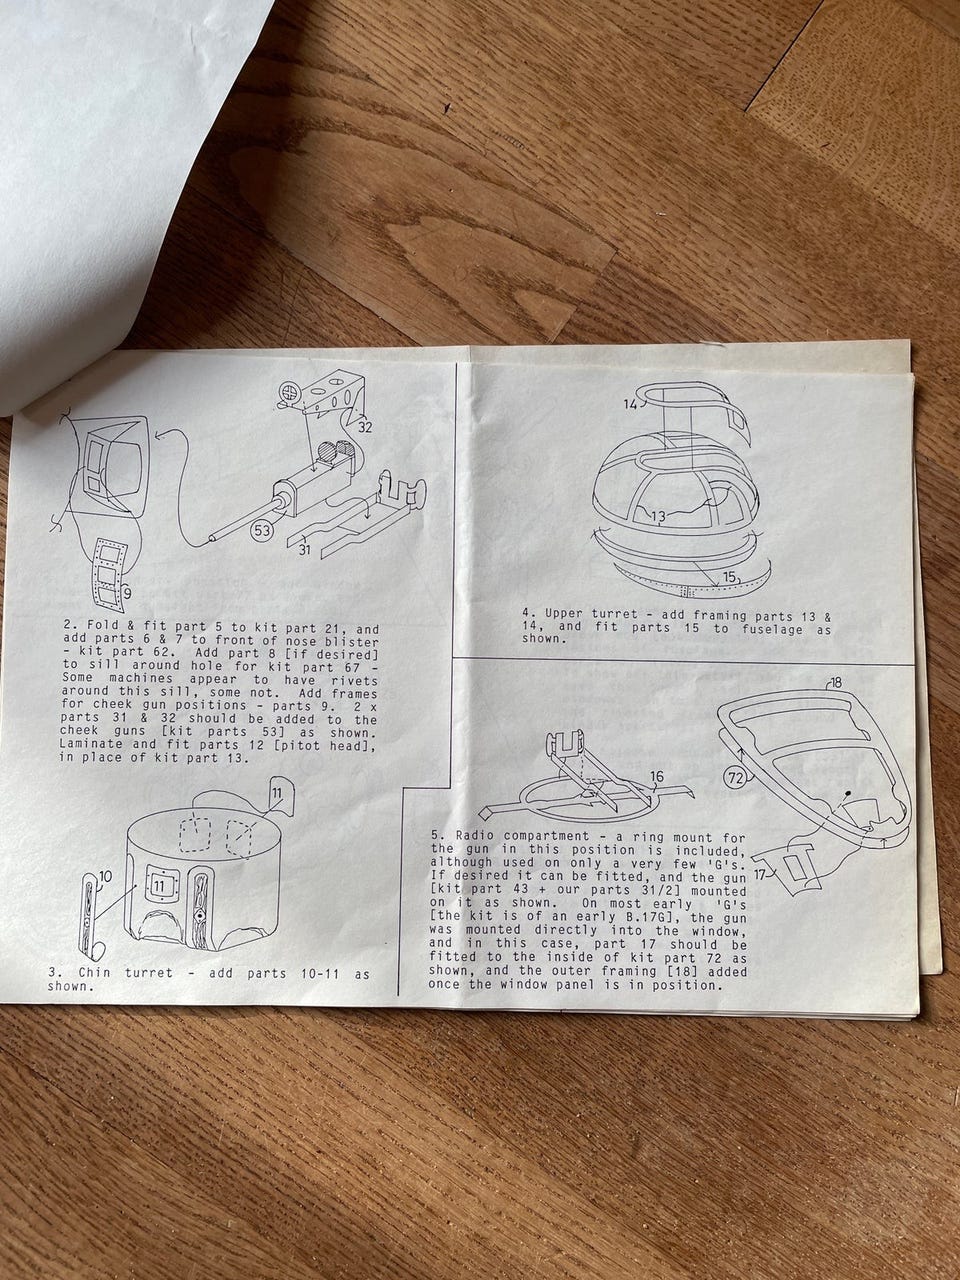 32
53
31
9
2. Fold & fit part 5 to kit part 21, and
add parts 6 & 7 to front of nose blister
- kit part 62. Add part 8 [if desired]
to sill around hole for kit part 67 -
Some machines appear to have rivets
around this sill, some not. Add frames
for cheek gun positions - parts 9. 2 x
parts 31 & 32 should be added to the
cheek guns [kit parts 53] as shown.
Laminate and fit parts 12 [pitot head],
in place of kit part 13.
11
10
11
3. Chin turret - add parts 10-11 as
shown.
14
13
15
4. Upper turret - add framing parts 13 &
14, and fit parts 15 to fuselage as
shown.
18
72
16
17
5. Radio compartment - a ring mount for
the gun in this position is included,
although used on only a very few 'G's.
If desired it can be fitted, and the gun
[kit part 43 + our parts 31/2] mounted
on it as shown. On most early 'G's
[the kit is of an early B.17G], the gun
was mounted directly into the window,
and in this case, part 17 should be
fitted to the inside of kit part 72 as
shown, and the outer framing [18] added
once the window panel is in position.